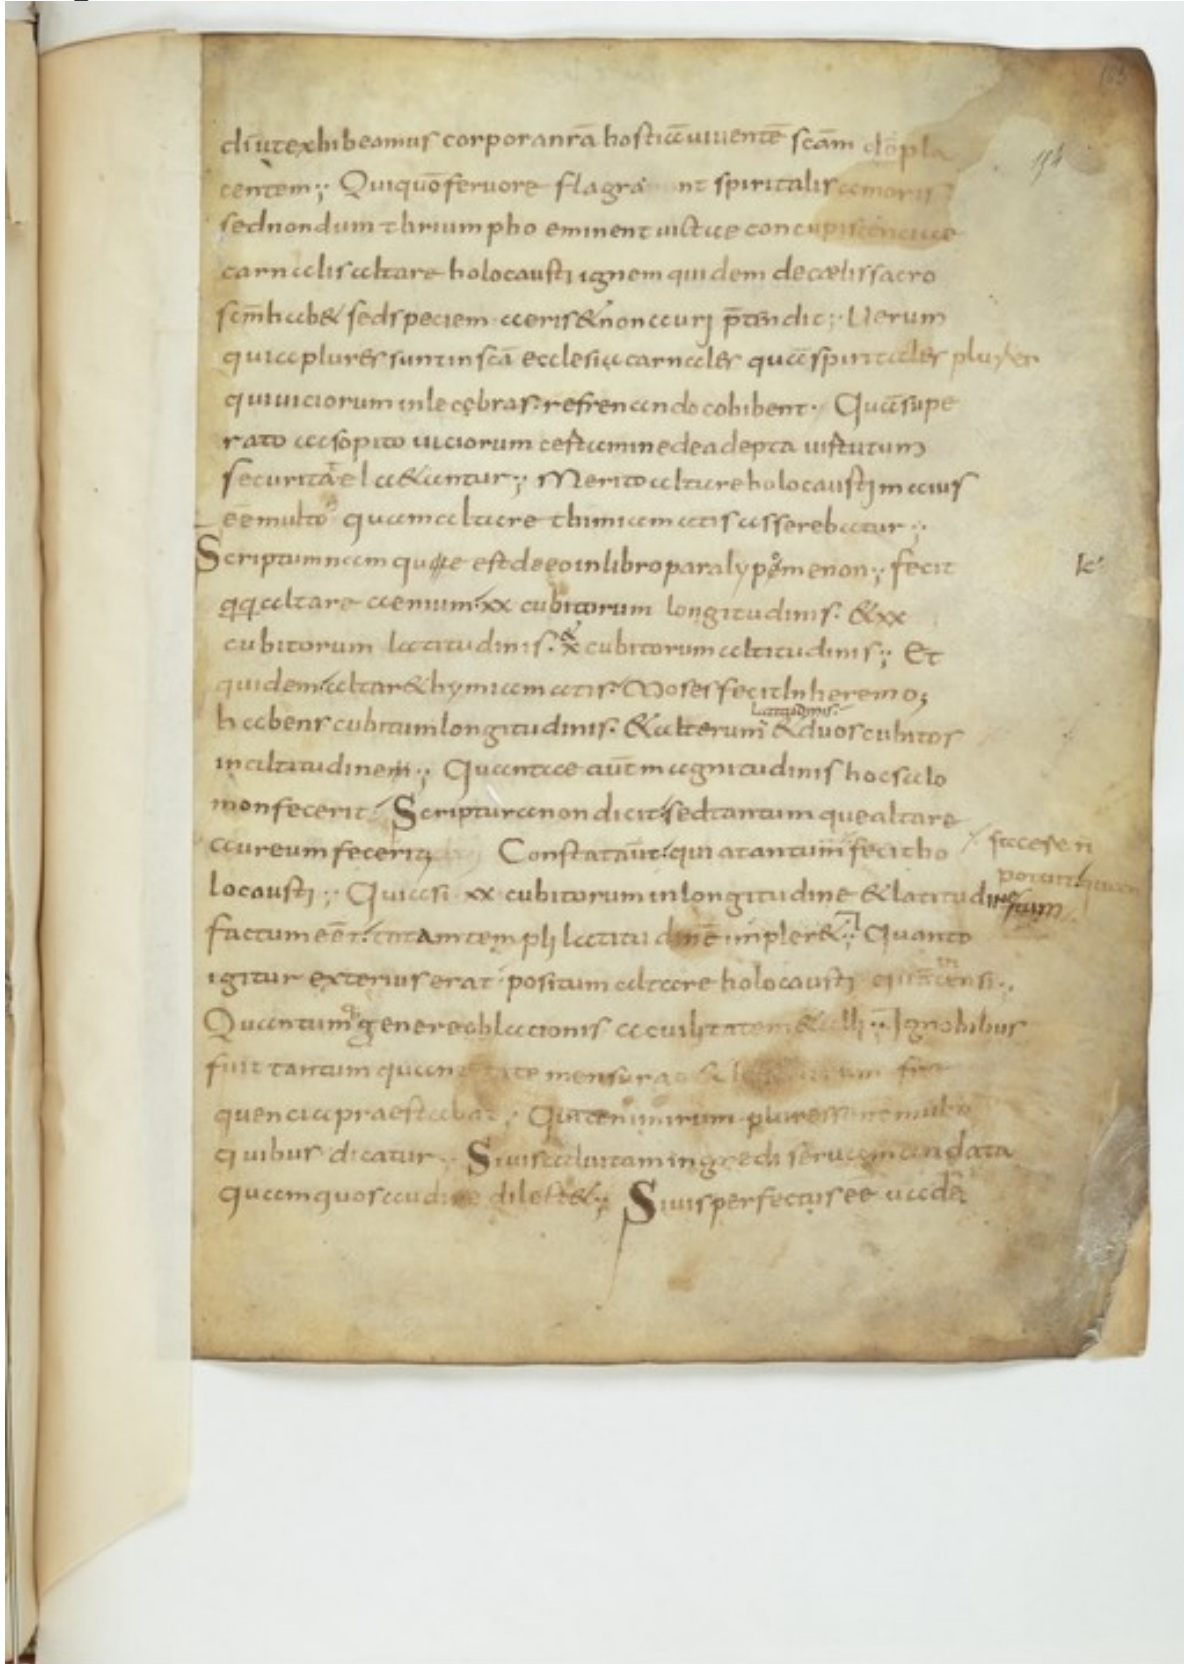 di ut exhibeamus corpora nr̄a hostiā uiuentē scām dō pla
centem;; Quiquo feruore flagra nt spiritalis amoris
sed nondum thriumpho eminent uictae concupiscenciae
carnalis altare holocausti ignem quidem de cælis sacro
scm̄ hab& sed speciem aeris & non auri p̄tendit;; Uerum
quia plures sunt in scā ecclesia carnales quā spiritales plures
qui uiciorum inlecebras refrenando cohibent. Quā supe
rato ac sopito uiciorum certamine de adepta uirtutum
securitate l&antur;; Merito altare holocausti maius
eē multo quam altare thimiamatis asserebatur;;
Scriptum namque est de eo in libro paralypomenon;; fecit
qq altare aenium xx cubitorum longitudinis. & xx
cubitorum latitudinis. & x cubitorum altitudinis;; Et
quidem altare thymiamatis. Moses fecit In heremo;
habens cubitum longitudinis. & alterum latitudinis. & duos cubitos
in altitudinem;; Quantae aūt magnitudinis hoc salo
mon fecerit. Scriptura non dicit sed tantum que altare
aureum fecerit; Constat aūt. quia tantum fecit ho
locausti;; Quia si xx cubitorum in longitudine & latitudine
factum eēt. totam templi latitudinē impler&;; Quanto
igitur exterius erat positum altare holocausti
Quantum genere oblacionis ac uilitatem Ignobibus
fuit tantum mensura
quencia praestabat;; plures sunt multo
quibus dicatur. Si uis ad uitam ingredi serua mandata
quam quos audire delect&;; Si uis perfectus eē uade
154
k